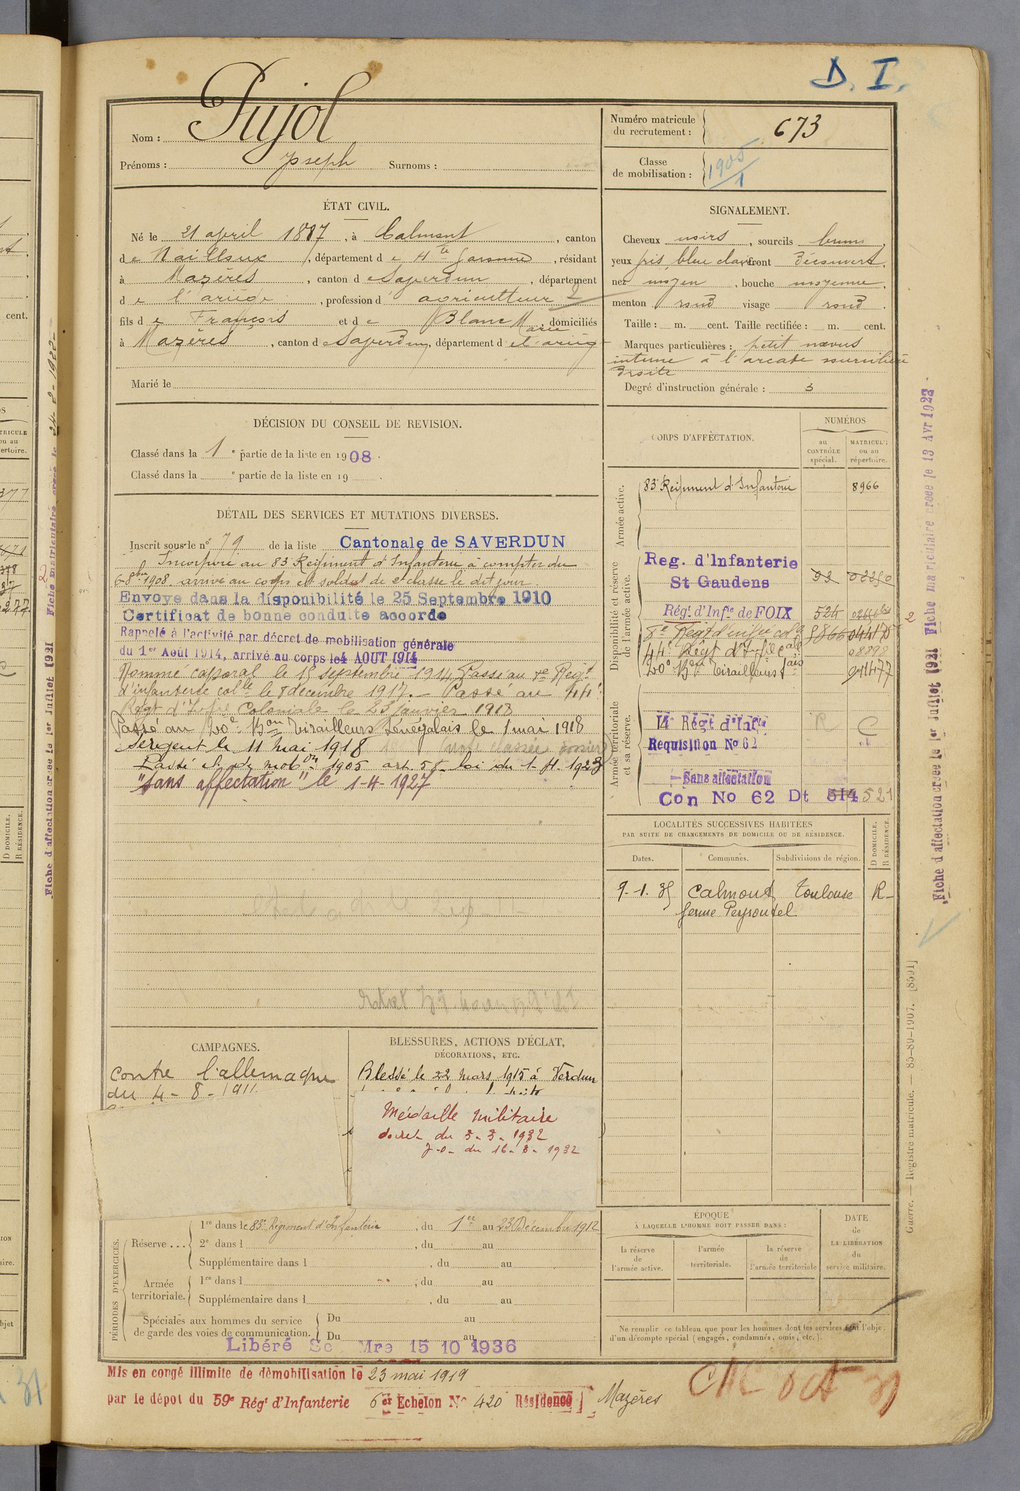 D. I.
Nom : Pujol
Prénoms : Joseph Surnoms :
Numéro matricule du recrutement : 673
Classe de mobilisation : 1905/1
ÉTAT CIVIL.
Né le 21 avril 1887, à Calmont, canton
de Nailloux, département de Hte Garonne, résidant
à Mazères, canton de Saverdun, département
de l'ariège, profession d'agriculteur 2
fils de François et de Blanc Marie domiciliés
à Mazères, canton de Saverdun, département de l'ariège
Marié le
SIGNALEMENT.
Cheveux noirs, sourcils bruns,
yeux gris bleu clair front découvert,
nez moyen, bouche moyenne,
menton rond visage rond.
Taille : m. cent. Taille rectifiée : m. cent.
Marques particulières : petit nævus
interne à l'arcade sourcilière
droite
Degré d'instruction générale : 3
DÉCISION DU CONSEIL DE REVISION.
Classé dans la 1e partie de la liste en 1908.
Classé dans la e partie de la liste en 19 .
DÉTAIL DES SERVICES ET MUTATIONS DIVERSES.
Inscrit sous le n° 79 de la liste Cantonale de SAVERDUN
Incorporé au 83e Régiment d'Infanterie à compter du
6 8bre 1908, arrivé au corps et soldat de 2e classe le dit jour.
Envoyé dans la disponibilité le 25 Septembre 1910
Certificat de bonne conduite accordé
Rappelé à l'activité par décret de mobilisation générale
du 1er Août 1914, arrivé au corps le 4 AOUT 1914
Nommé caporal le 1er septembre 1914 Passé au Regt
d'infanterie colle le 8 décembre 1917. — Passé au 44e
Régt d'Infrie Coloniale le 23 janvier 1918
Passé au 20e Bon Tirailleurs Sénégalais le 1 mai 1918
Sergent le 11 mai 1918
Passé cl. de mobon 1905 art. 58 loi du 1-4-1923
"Sans affectation" le 1-4-1927
CORPS D'AFFECTATION.
NUMÉROS
au CONTRÔLE spécial.
MATRICULE ou au répertoire.
Armée active.
83e Régiment d'Infanterie 8966
Disponibilité et réserve de l'armée active.
Reg. d'Infanterie
St Gaudens
Régt d'Infie de FOIX 524
44e Régt d'Infie Cale 08298
20e Bon Tirailleurs
Armée territoriale et sa réserve.
14e Régt d'Infie C
Requisition No 62
Sans affectation
Con No 62 Dt 514 521
LOCALITÉS SUCCESSIVES HABITÉES
PAR SUITE DE CHANGEMENTS DE DOMICILE OU DE RÉSIDENCE.
Dates. Communes. Subdivisions de région. D DOMICILE. R RÉSIDENCE.
9-1-35 Calmont Toulouse R
ferme Peyroutel
CAMPAGNES.
Contre l'allemagne
du 4-8-1914
BLESSURES, ACTIONS D'ÉCLAT,
DÉCORATIONS, ETC.
Blessé le 22 mars 1915 à Verdun
Médaille Militaire
décret du 3-3-1932
J.O. du 16-3-1932
PÉRIODES D'EXERCICES.
Réserve...
1re dans le 83e Régiment d'Infanterie, du 1er au 23 Décembre 1912
2e dans l , du au
Supplémentaire dans l du au
Armée territoriale.
1re dans l , du au
Supplémentaire dans l , du au
Spéciales aux hommes du service de garde des voies de communication.
Du au
Du au
Libéré Sce Mre 15 10 1936
ÉPOQUE
À LAQUELLE L'HOMME DOIT PASSER DANS :
la réserve de l'armée active.
l'armée territoriale.
la réserve de l'armée territoriale
DATE de LA LIBÉRATION du service militaire.
Ne remplir ce tableau que pour les hommes dont les services font l'objet
d'un décompte spécial (engagés, condamnés, omis, etc.).
Mis en congé illimité de démobilisation le 23 mai 1919
par le dépot du 59e Régt d'Infanterie 6er Echelon No 420 Résidence Mazères
Fiche d'affectation créée le 1er Juillet 1921 Fiche matriculaire créée le 13 Avr 1922
Guerre. — Registre matricule. — 85-80-1907. [8591]